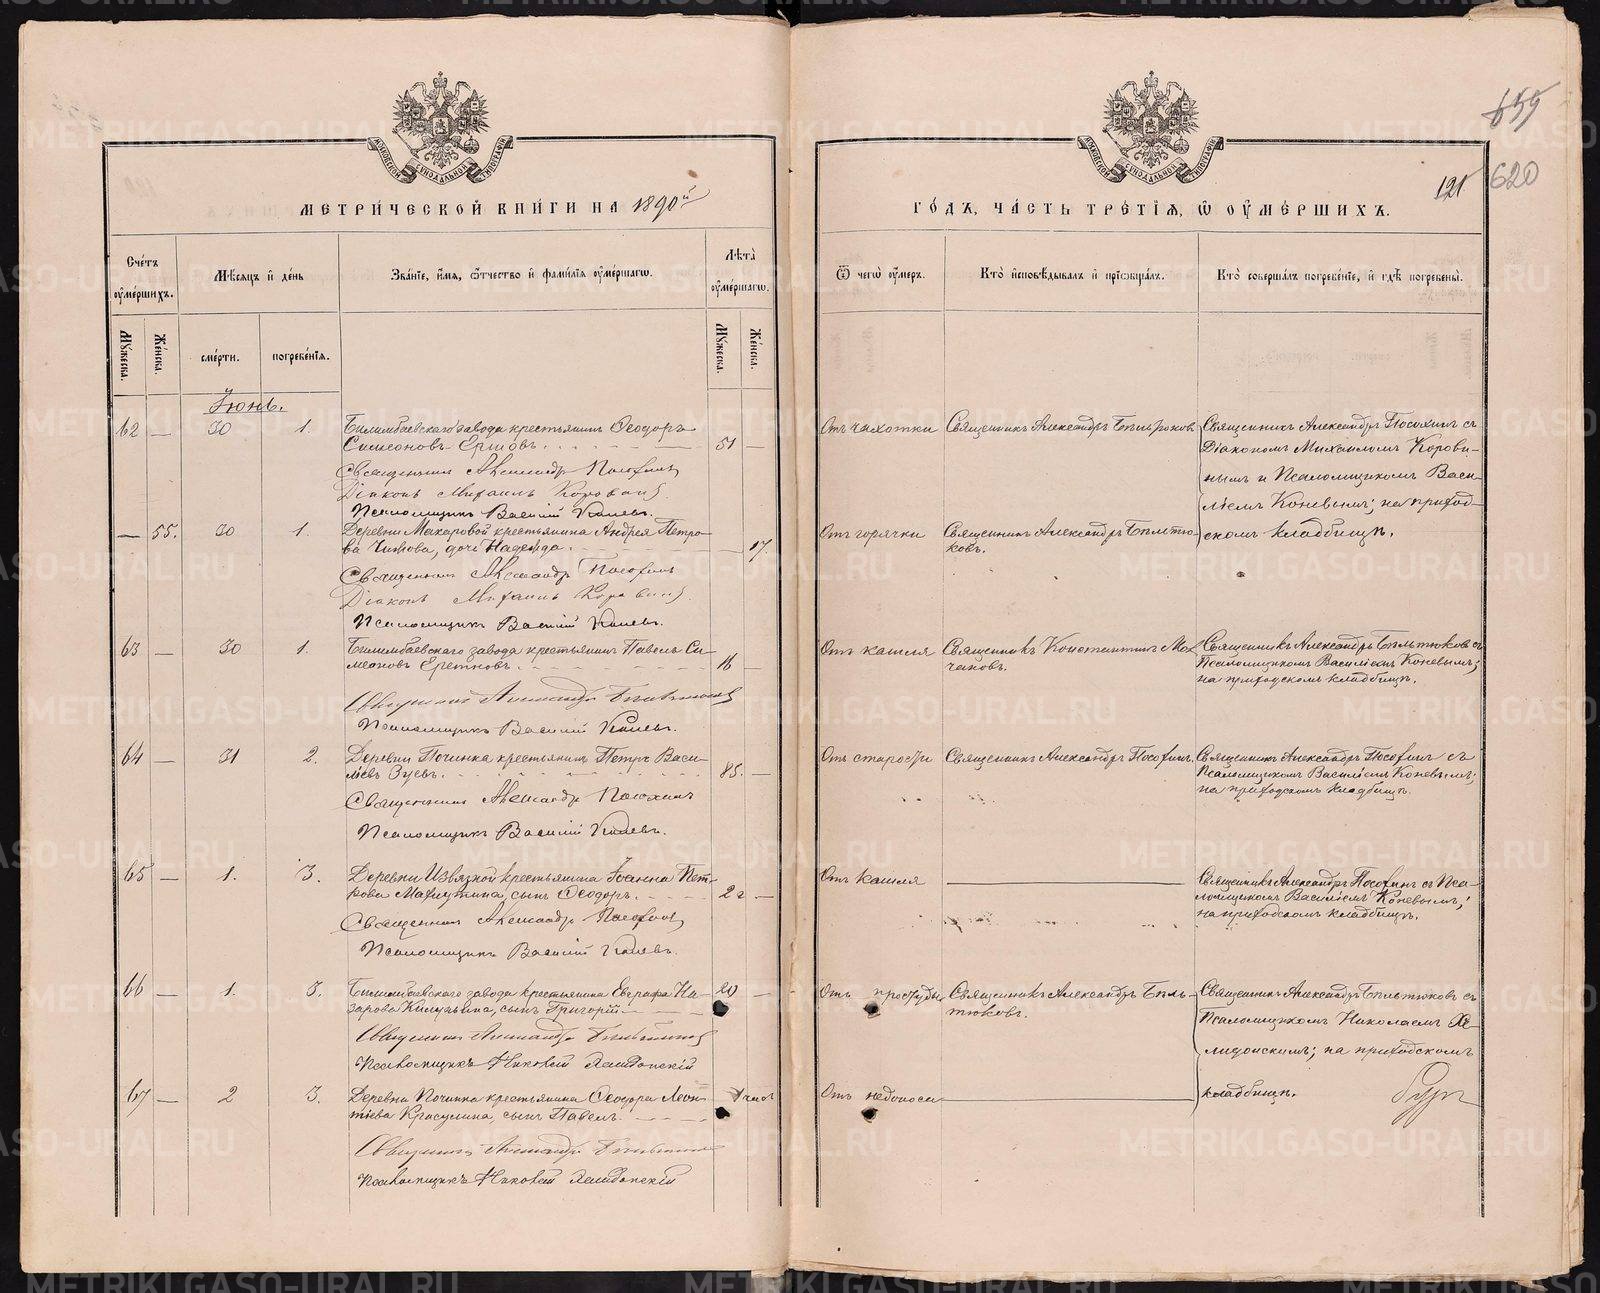 659
620
121
МОСКОВСКОЙ СѴНОДАЛЬНОЙ ТИПОГРАФІИ
МОСКОВСКОЙ СѴНОДАЛЬНОЙ ТИПОГРАФІИ
МЕТРИ́ЧЕСКОЙ КНИ́ГИ НА 1890й
ГО́ДЪ, ЧА́СТЬ ТРЕ́ТІЯ, Ѡ ОУМЕ́РШИХЪ.
Сче́тъ оуме́ршихъ.
Мѣ́сяцъ и де́нь
Зва́нїе, и́мя, ѻ҆́тчество и фами́лїя оуме́ршагѡ.
Лѣ́та оуме́ршагѡ.
Ѿ чегѡ̀ оу́меръ.
Кто̀ и҆сповѣ́дывалъ и҆ прїѡбща́лъ.
Кто̀ соверша́лъ погребе́нїе, и҆ гдѣ̀ погребены̀.
Му́жеска.
Же́нска.
сме́рти.
погребе́нїя.
Му́жеска.
Же́нска.
Іюнь.
62 — 30 1. Билимбаевскаго завода крестьянин Ѳеодоръ
Симеоновъ Ершовъ. 51 —
Священникъ Александръ Посохинъ
Діаконъ Михаилъ Коровинъ
Псаломщикъ Василій Коневъ.
Отъ чахотки Священникъ Александръ Бѣльтюковъ
Священникъ Александръ Посохинъ съ
Діакономъ Михаиломъ Корови-
нымъ и Псаломщикомъ Васи-
ліемъ Коневымъ; на приход-
скомъ кладбищѣ.
— 55. 30 1. Деревни Макаровой крестьянина Андрея Петро-
ва Чижова, дочь Надежда. — 17.
Священникъ Александръ Посохинъ
Діаконъ Михаилъ Коровинъ
Псаломщикъ Василій Коневъ.
Отъ горячки Священникъ Александръ Бѣльтю-
ковъ.
63 — 30 1. Билимбаевскаго завода крестьянинъ Павелъ Си-
меоновъ Еретновъ. 16 —
Священникъ Александръ Бѣльтюковъ
Псаломщикъ Василій Коневъ.
Отъ кашля Священникъ Константинъ Мо-
чановъ.
Священникъ Александръ Бѣльтюковъ съ
Псаломщикомъ Василіемъ Коневымъ;
на приходскомъ кладбищѣ.
64 — 31 2. Деревни Починка крестьянинъ Петръ Васи-
ліевъ Зуевъ. 85. —
Священникъ Александръ Посохинъ
Псаломщикъ Василій Коневъ.
Отъ старости Священникъ Александръ Посохинъ.
Священникъ Александръ Посохинъ съ
Псаломщикомъ Василіемъ Коневымъ;
на приходскомъ кладбищѣ.
65 — 1. 3. Деревни Извязной крестьянина Іоанна Пет-
рова Макушина, сынъ Ѳеодоръ. 2 г —
Священникъ Александръ Посохинъ
Псаломщикъ Василій Коневъ.
Отъ кашля —
Священникъ Александръ Посохинъ съ Пса-
ломщикомъ Василіемъ Коневымъ;
на приходскомъ кладбищѣ.
66 — 1. 3. Билимбаевскаго завода крестьянина Евграфа На-
зарова Кишкина, сынъ Григорій. 20 —
Священникъ Александръ Бѣльтюковъ
Псаломщикъ Николай Хелидонскій
Отъ простуды Священникъ Александръ Бѣль-
тюковъ.
Священникъ Александръ Бѣльтюковъ съ
Псаломщикомъ Николаемъ Хе-
лидонскимъ; на приходскомъ
кладбищѣ.
67 — 2 3. Деревни Починка крестьянина Ѳеодора Леон-
тіева Красулина, сынъ Павелъ. 1 часъ
Священникъ Александръ Бѣльтюковъ
Псаломщикъ Николай Хелидонскій
Отъ недоноса —
METRIKI.GASO-URAL.RU